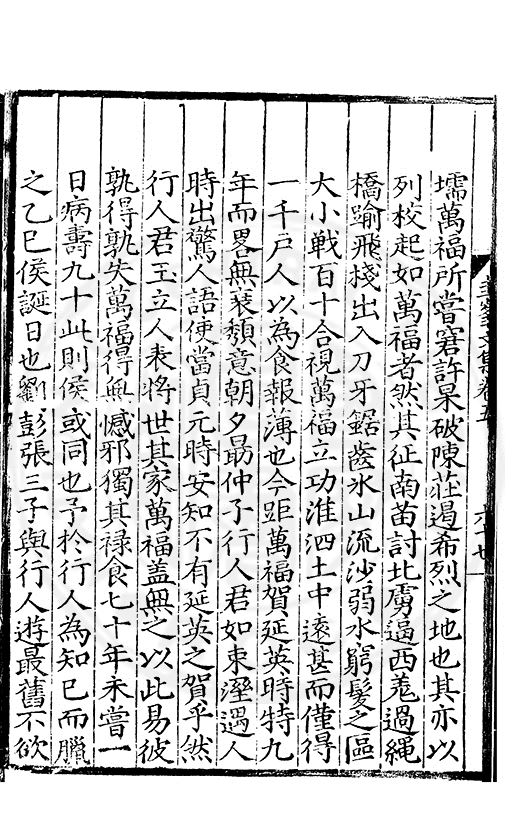 壖萬福所嘗窘許杲破陳莊遏希烈之地也其亦以
列校起如萬福者然其征南苗討北虜逼西羗過繩
橋踰飛棧出入刀牙鋸齒氷山流沙弱水窮髮之區
大小戰百十合視萬福立功淮泗土中遠甚而僅得
一千戸人以為食報薄也今距萬福賀延英時特九
年而畧無衰頽意朝夕最仲子行人君如束溼遇人
時出驚人語便當貞元時安知不有延英之賀乎然
行人君玉立人表將世其家萬福盖無之以此易彼
孰得孰失萬福得無憾邪獨其禄食七十年未嘗一
日病壽九十此則侯或同也予於行人為知已而臘
之乙巳侯誕日也劉彭張三子與行人遊最舊不欲
文集卷五